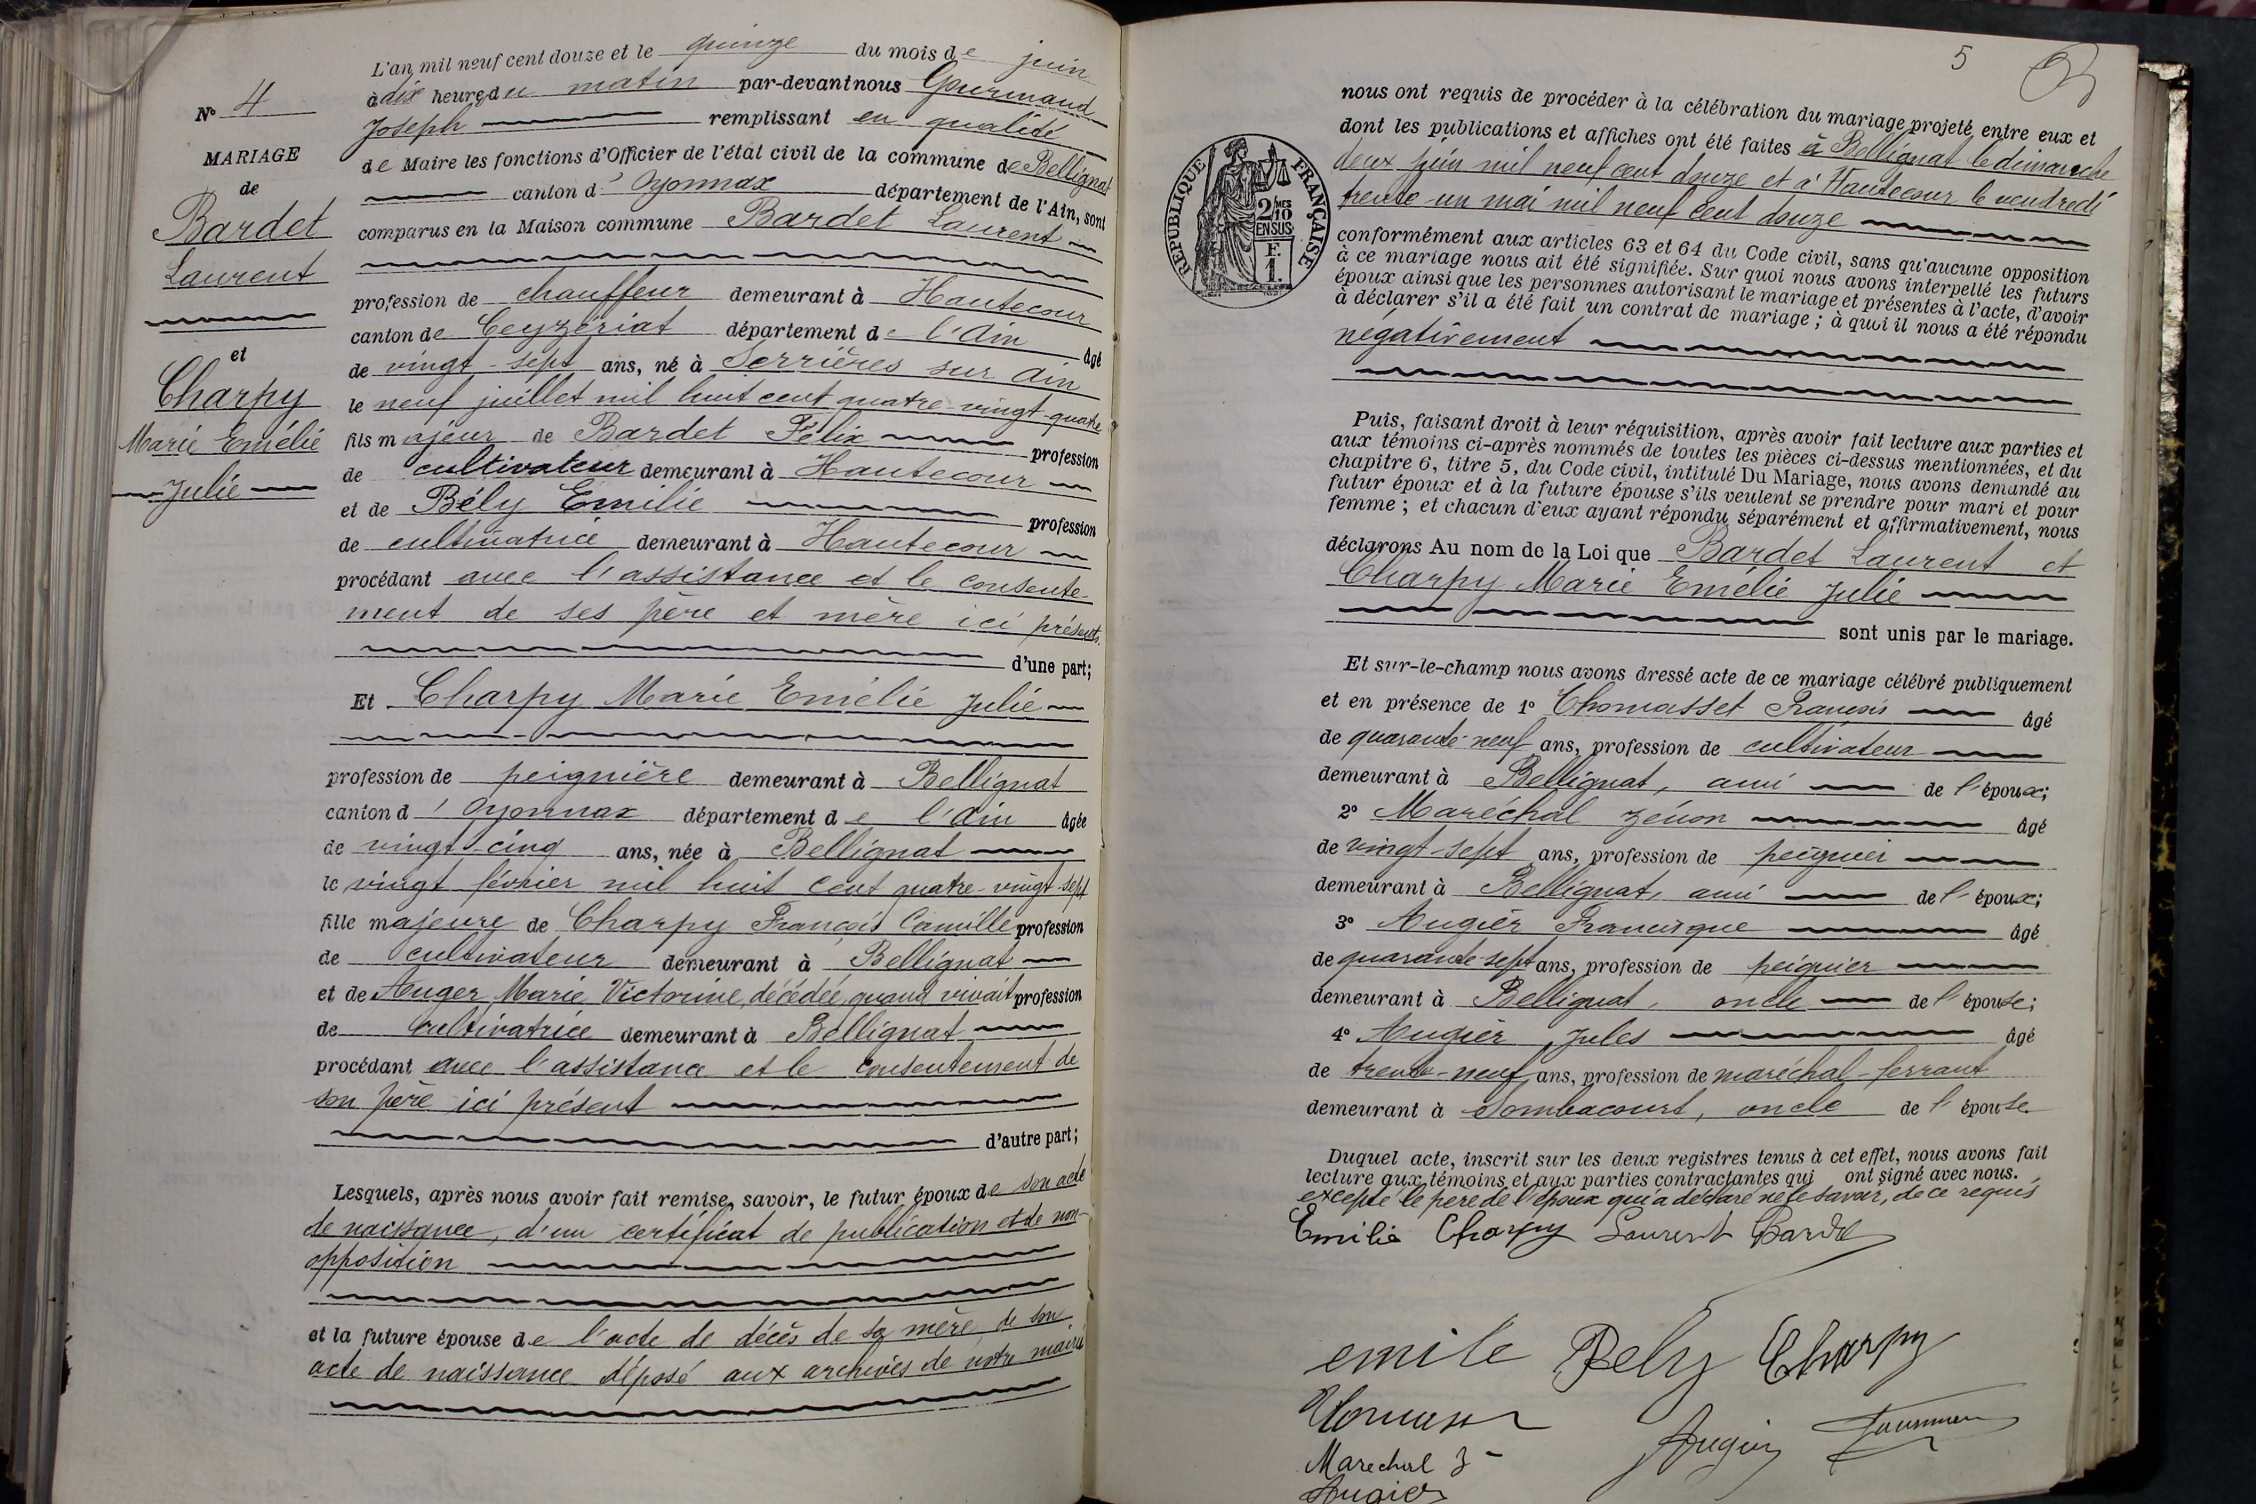 L'an mil neuf cent douze et le quinze du mois de juin
à dix heures du matin par-devant nous Gourmand
Joseph remplissant en qualité
de Maire les fonctions d'Officier de l'état civil de la commune de Bellignat
canton d'Oyonnax département de l'Ain, sont
comparus en la Maison commune Bardet Laurent
profession de chauffeur demeurant à Hautecour
canton de Ceyzériat département de l'Ain âgé
de vingt-sept ans, né à Serrières sur Ain
le neuf juillet mil huit cent quatre-vingt-quatre
fils majeur de Bardet Félix profession
de cultivateur demeurant à Hautecour
et de Bély Emilie profession
de cultivatrice demeurant à Hautecour
procédant avec l'assistance et le consente-
ment de ses père et mère ici présents.
d'une part;
Et Charpy Marie Emélie Julie
profession de peignière demeurant à Bellignat
canton d'Oyonnax département de l'Ain âgée
de vingt-cinq ans, née à Bellignat
le vingt février mil huit cent quatre-vingt-sept
fille majeure de Charpy François Camille profession
de cultivateur demeurant à Bellignat
et de Auger Marie Victorine, décédée, quand vivait profession
de cultivatrice demeurant à Bellignat
procédant avec l'assistance et le consentement de
son père ici présent
d'autre part;
Lesquels, après nous avoir fait remise, savoir, le futur époux de son acte
de naissance, d'un certificat de publication et de non-
opposition
et la future épouse de l'acte de décès de sa mère, de son
acte de naissance déposé aux archives de notre mairie
N° 4
MARIAGE
de
Bardet
Laurent
et
Charpy
Marie Emélie
Julie
5
nous ont requis de procéder à la célébration du mariage projeté entre eux et
dont les publications et affiches ont été faites à Bellignat le dimanche
deux juin mil neuf cent douze et à Hautecour le vendredi
trente-un mai mil neuf cent douze
conformément aux articles 63 et 64 du Code civil, sans qu'aucune opposition
à ce mariage nous ait été signifiée. Sur quoi nous avons interpellé les futurs
époux ainsi que les personnes autorisant le mariage et présentes à l'acte, d'avoir
à déclarer s'il a été fait un contrat de mariage; à quoi il nous a été répondu
négativement
RÉPUBLIQUE FRANÇAISE
2/10 MES
EN SUS
F.
1.
Puis, faisant droit à leur réquisition, après avoir fait lecture aux parties et
aux témoins ci-après nommés de toutes les pièces ci-dessus mentionnées, et du
chapitre 6, titre 5, du Code civil, intitulé Du Mariage, nous avons demandé au
futur époux et à la future épouse s'ils veulent se prendre pour mari et pour
femme; et chacun d'eux ayant répondu séparément et affirmativement, nous
déclarons Au nom de la Loi que Bardet Laurent et
Charpy Marie Emélie Julie
sont unis par le mariage.
Et sur-le-champ nous avons dressé acte de ce mariage célébré publiquement
et en présence de 1° Thomasset François âgé
de quarante-neuf ans, profession de cultivateur
demeurant à Bellignat, ami de l'époux;
2° Maréchal Zénon âgé
de vingt-sept ans, profession de peignier
demeurant à Bellignat, ami de l'époux;
3° Augier Francisque âgé
de quarante-sept ans, profession de peignier
demeurant à Bellignat, oncle de l'épouse;
4° Augier Jules âgé
de trente-neuf ans, profession de maréchal-ferrant
demeurant à Sombacourt, oncle de l'épouse
Duquel acte, inscrit sur les deux registres tenus à cet effet, nous avons fait
lecture aux témoins et aux parties contractantes qui ont signé avec nous.
excepté le père de l'époux qui a déclaré ne le savoir, de ce requis
Emilie Charpy Laurent Bardet
emile Bely Charpy
Marechal Z
Augier